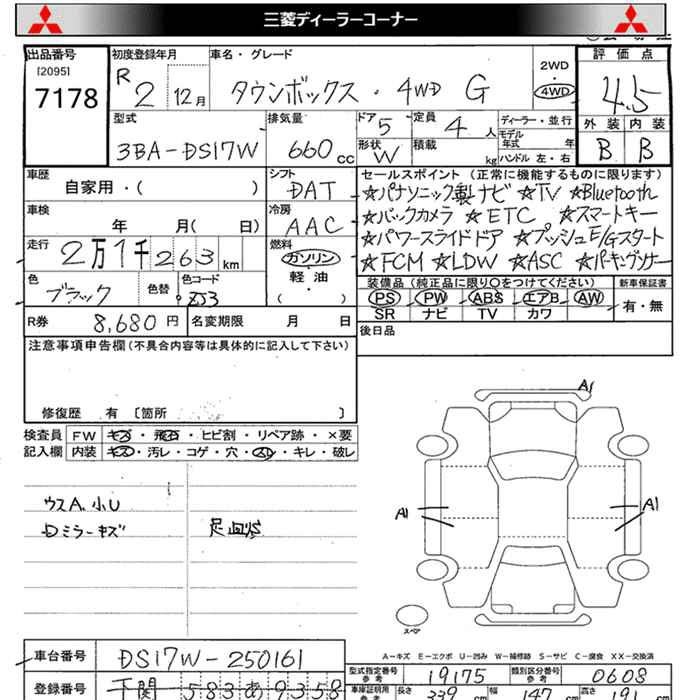 三菱ディーラーコーナー
出品番号 初度登録年月 車名・グレード 評価点
[2095]
7178
R 2 12月 タウンボックス・4WD G 2WD・4WD 4.5
型式 3BA-DS17W 排気量 660cc ドア 5 定員 4人 ディーラー・並行 外装 内装
形状 W 積載 kg モデル年式 年 ハンドル 左・右 B B
車歴 自家用・( ) シフト DAT
セールスポイント(正常に機能するものに限ります)
☆パナソニック製ナビ ☆TV ☆Bluetooth
☆バックカメラ ☆ETC ☆スマートキー
☆パワースライドドア ☆プッシュE/Gスタート
☆FCM ☆LDW ☆ASC ☆パーキングソナー
車検 年 月( 日) 冷房 AAC
走行 2万1千263km 燃料 ガソリン・軽油・( )
色 ブラック 色替 色コード ZJ3
装備品(純正品に限り○をつけてください) 新車保証書
PS PW ABS エアB AW 有・無
SR ナビ TV カワ
R券 8,680円 名変期限 月 日 後日品
注意事項申告欄(不具合内容等は具体的に記入して下さい)
修復歴 有 [箇所 ]
検査員記入欄 FW キズ・飛石・ヒビ割・リペア跡・×要
内装 キズ・汚レ・コゲ・穴・スレ・キレ・破レ
ウスA、小U
Dミラーキズ 足回サビ
A1
A1 A1
スペア
A-キズ E-エクボ U-凹み W-補修跡 S-サビ C-腐食 XX-交換済
車台番号 DS17W-250161
型式指定番号 参考 19175 類別区分番号 参考 0608
登録番号 下関 583 あ 9358
車庫証明用 参考 長さ 339cm 幅 147cm 高さ 191cm